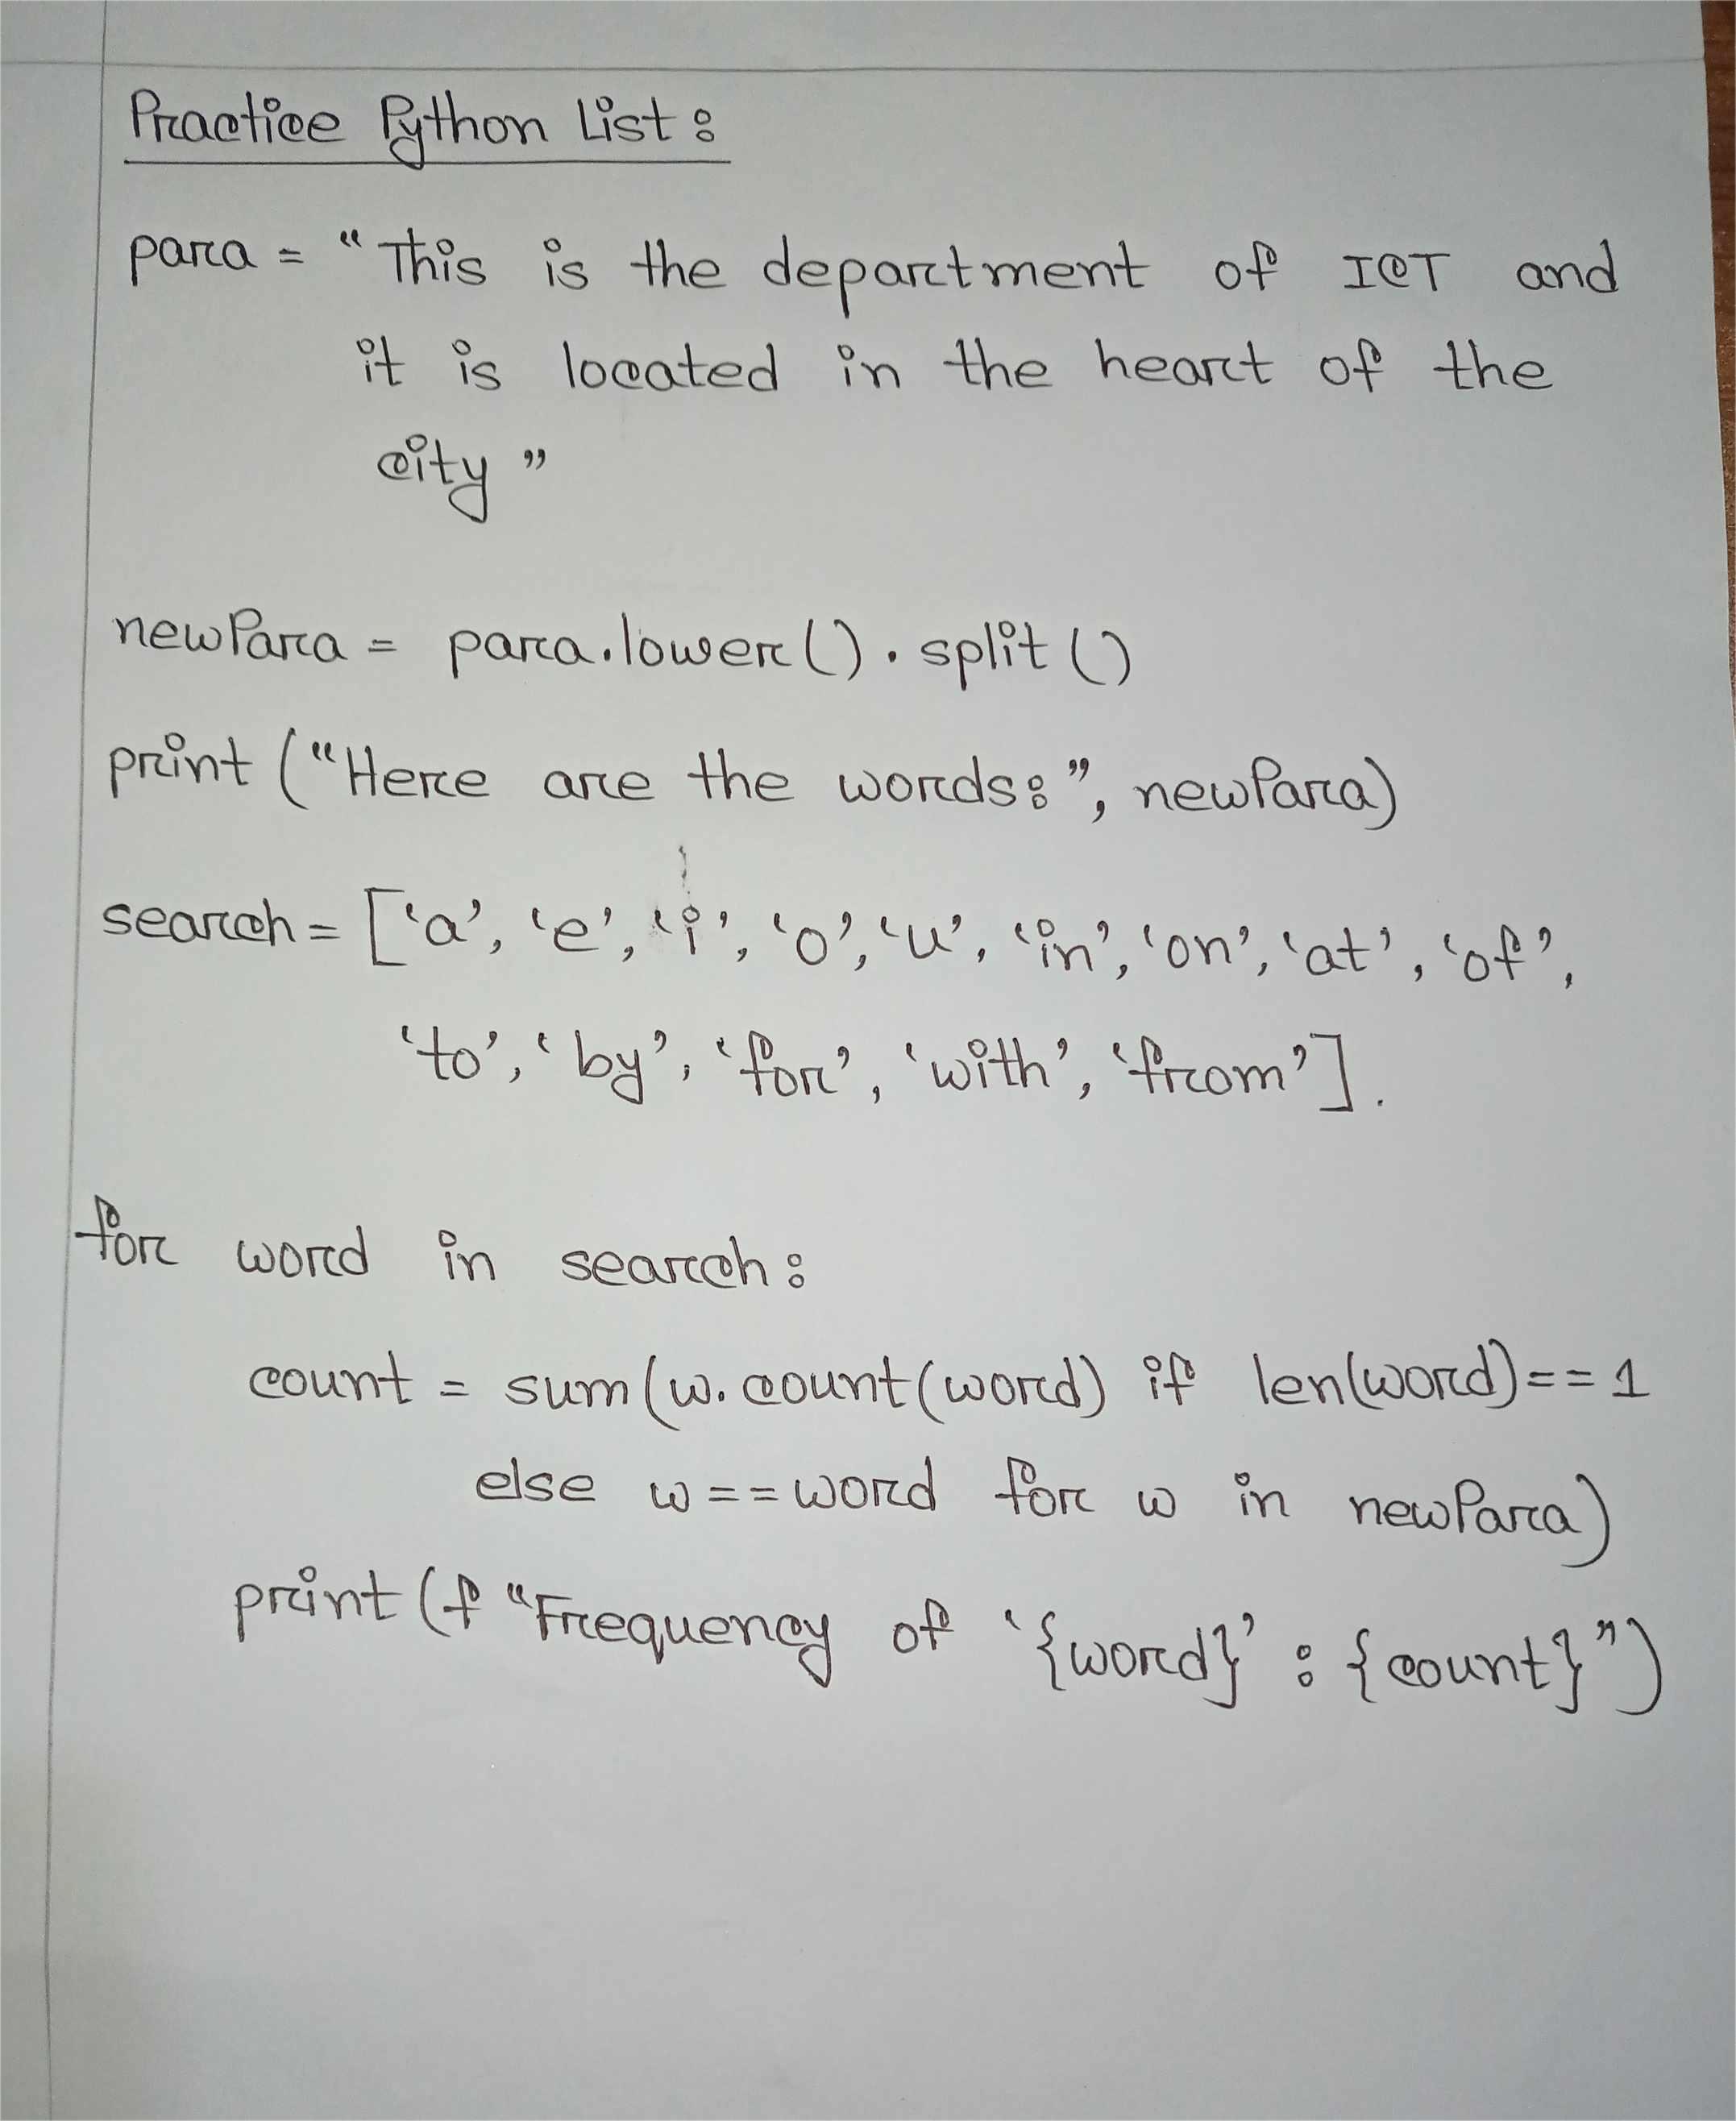 Practice Python List:
para = "This is the department of ICT and
it is located in the heart of the
city"
newPara = para.lower().split()
print ("Here are the words:", newPara)
search = ['a', 'e', 'i', 'o', 'u', 'in', 'on', 'at', 'of',
'to', 'by', 'for', 'with', 'from'].
for word in search:
count = sum(w.count(word) if len(word)==1
else w==word for w in newPara)
print (f "Frequency of '{word}' : {count}")